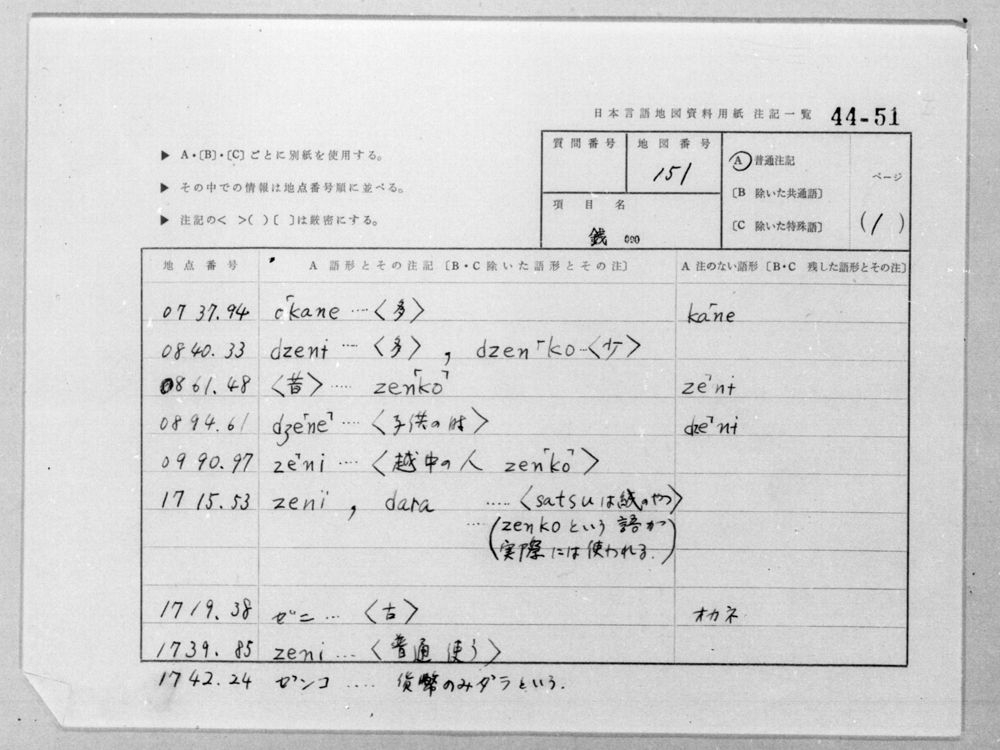 日本言語地図資料用紙 注記一覧 44-51
▶ A・〔B〕・〔C〕ごとに別紙を使用する。
▶ その中での情報は地点番号順に並べる。
▶ 注記の< >( )〔 〕は厳密にする。
質問番号 地図番号 151
項目名 銭
A 普通注記
〔B 除いた共通語〕
〔C 除いた特殊語〕
ページ (1)
地点番号 A 語形とその注記〔B・C 除いた語形とその注〕 A 注のない語形〔B・C 残した語形とその注〕
07 37.94 o「kane …〈多〉 ka「ne
08 40.33 dzenɨ …〈多〉, dzen「ko…〈少〉
08 61.48 〈昔〉…… zen「ko」 ze」nɨ
08 94.61 dʒe「ne」…〈子供の時〉 dze」nɨ
09 90.97 ze」ni …〈越中の人 zen「ko」〉
17 15.53 zeni, dara ……〈satsuは紙のやつ〉
…(zenkoという語が
実際には使われる.)
17 19.38 ゼニ …〈古〉 オカネ
17 39.85 zeni …〈普通使う〉
17 42.24 ゼンコ …… 貨幣のみダラという.